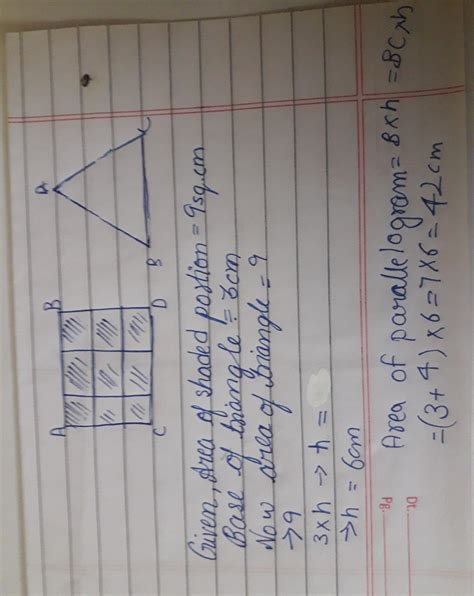 A B
C D
A
B C
Given, Area of shaded portion = 9sq.cm
Base of triangle = 3cm
Now area of triangle = 9
→ 9
3×h → h =
→ h = 6cm
Dt.
Pg.
Area of parallelogram = B×h = BC×h
= (3+4)×6 = 7×6 = 42cm